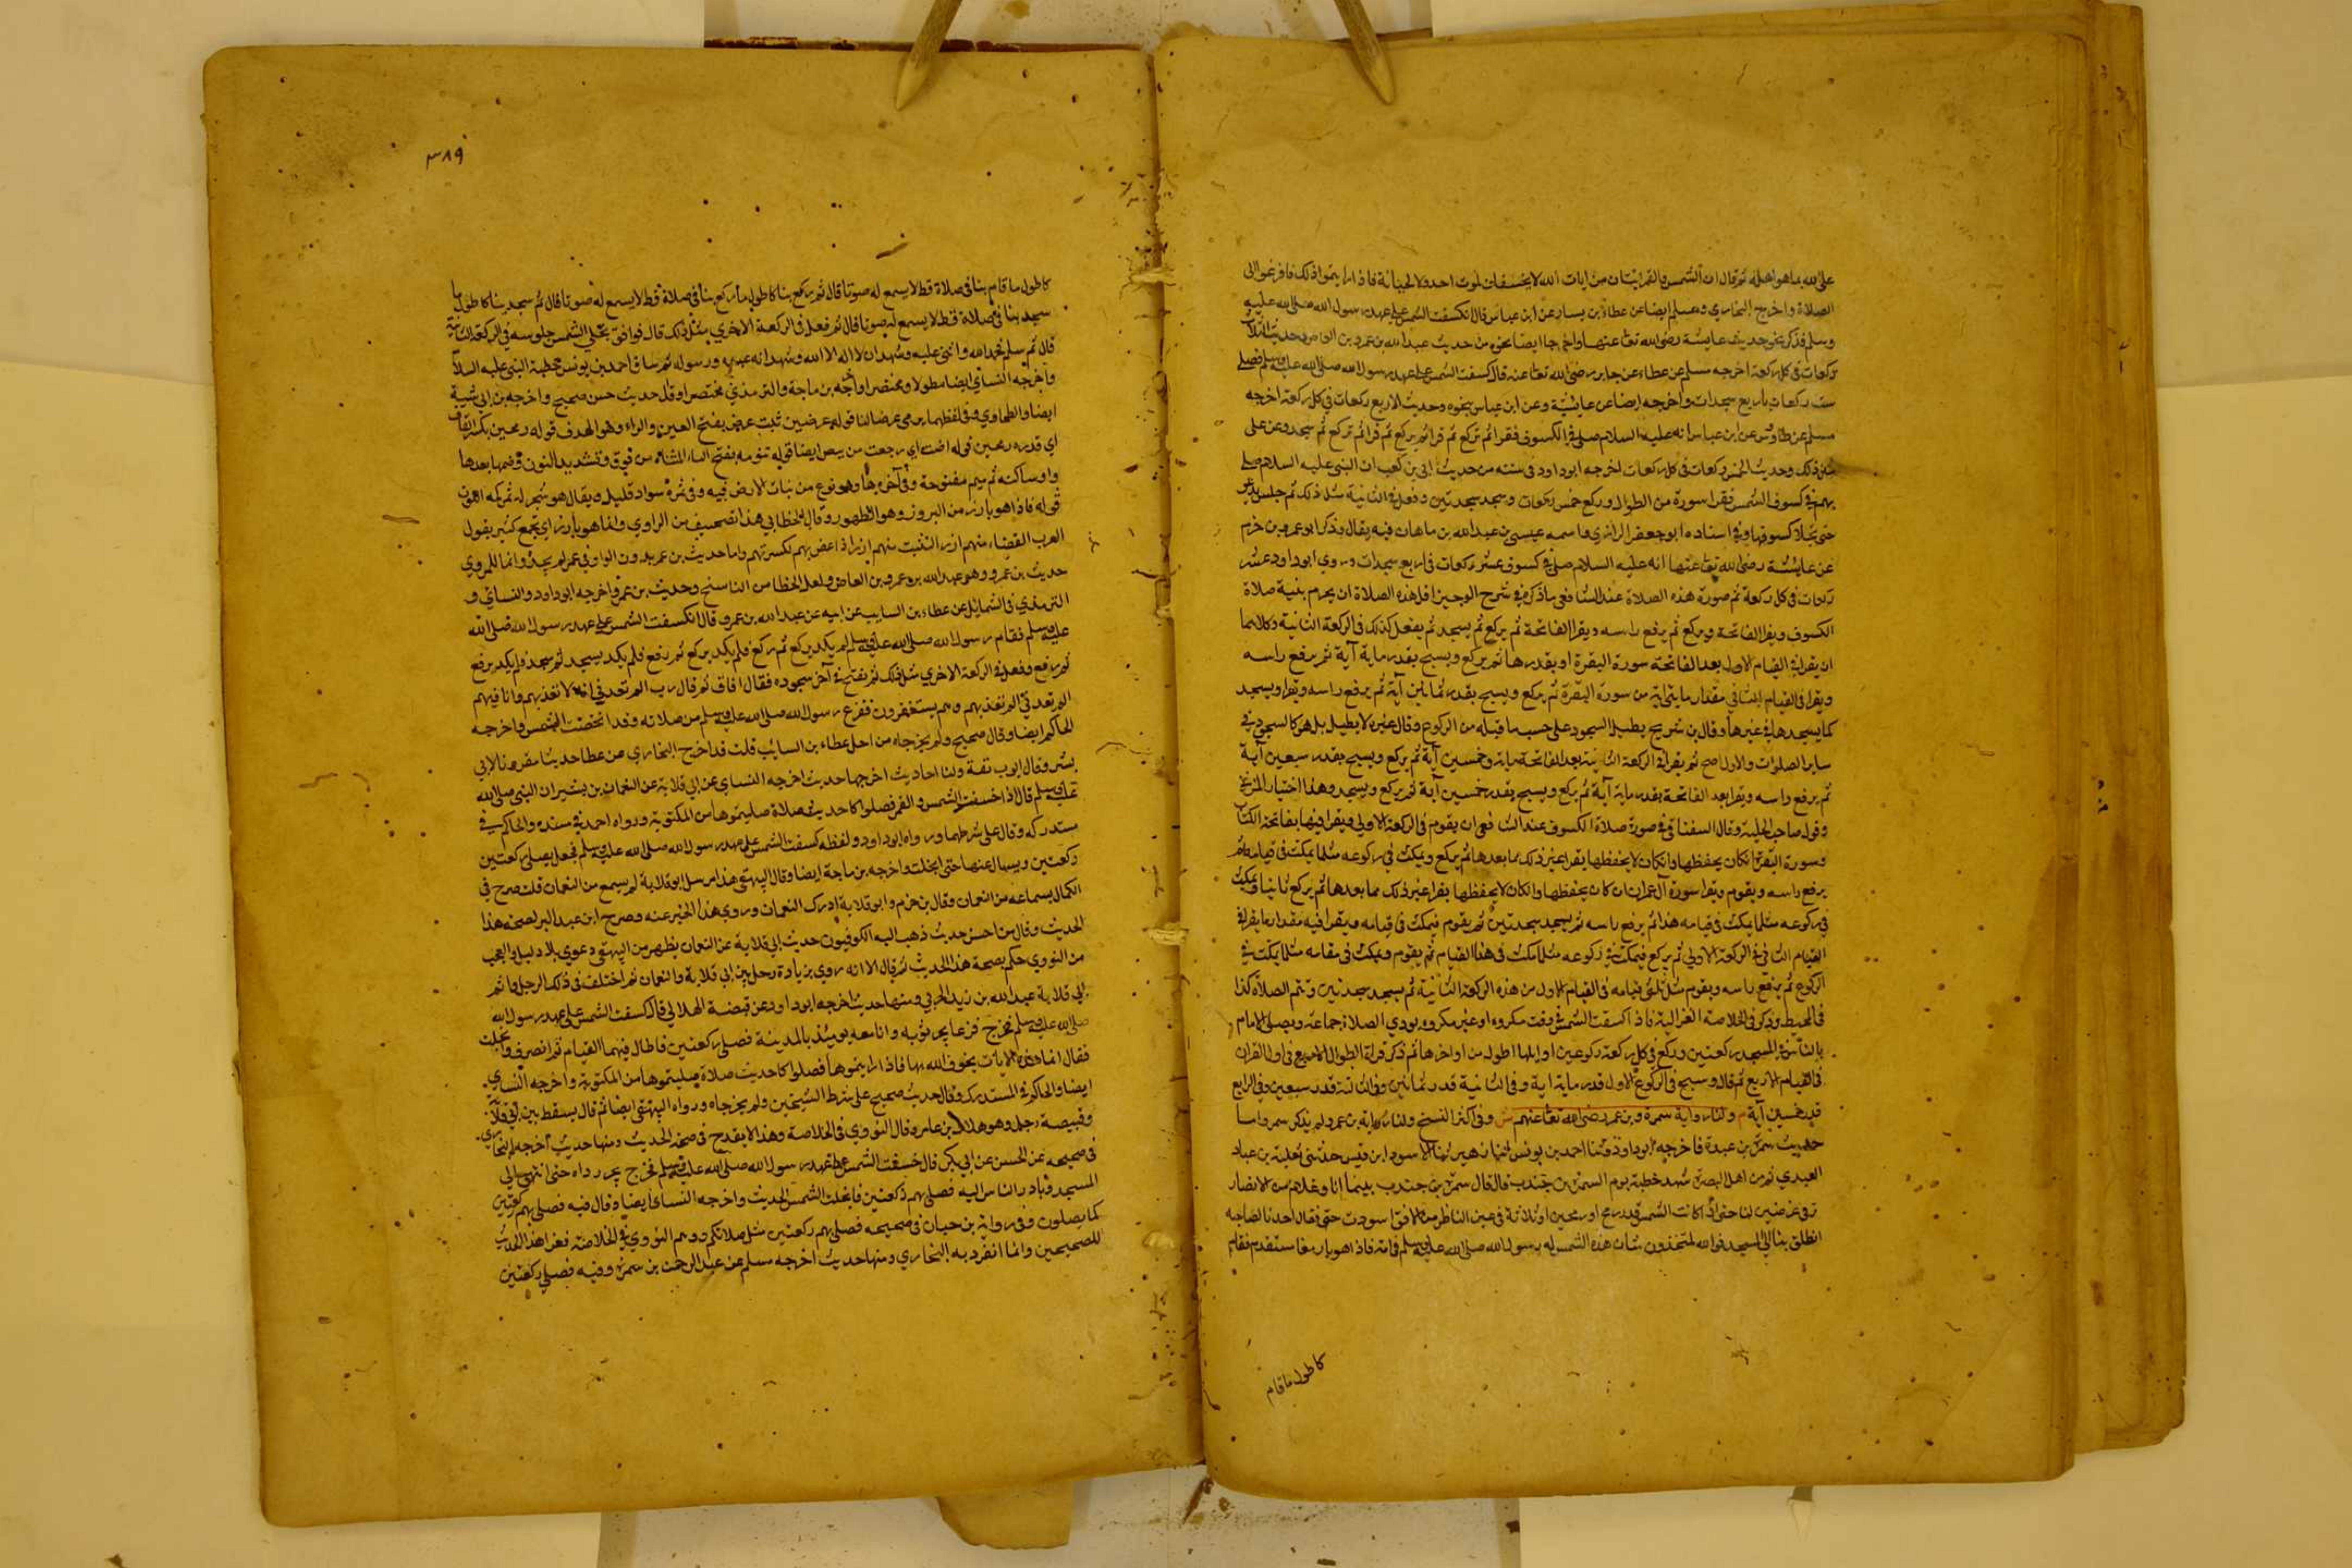 على الله بما هو اهله ثم قال ان الشمس والقمر ايتان من ايات الله لا يخسفان لموت احد ولا لحياته فاذا رايتموا ذلك فافزعوا الى
الصلاة واخرج البخاري ومسلم ايضا عن عطاء بن يسار عن ابن عباس قال انكسفت الشمس على عهد رسول الله صلى الله عليه
وسلم فذكر نحو حديث عايشة رضى الله تعا عنها واخرجا ايضا نحوه من حديث عبد الله بن عمرو بن العاص وحديث الثلاث
ركعات فى كل ركعة اخرجه مسلم عن عطاء عن جابر رضى الله تعا عنه قال كسفت الشمس على عهد رسول الله صلى الله عليه وسلم فصلى
ست ركعات باربع سجدات واخرجه ايضا عن عايشة وعن ابن عباس بنحوه وحديث الاربع ركعات فى كل ركعة اخرجه
مسلم عن طاوس عن ابن عباس انه عليه السلام صلى فى الكسوف فقرا ثم ركع ثم قرا ثم ركع ثم قرا ثم ركع ثم سجد وعن على
مثل ذلك وحديث الخمس ركعات فى كل ركعات اخرجه ابو داود فى سننه من حديث ابى بن كعب ان النبى عليه السلام صلى
بهم فى كسوف الشمس فقرا سورة من الطوال وركع خمس ركعات وسجد سجدتين وفعل فى الثانية مثل ذلك ثم جلس يدعو
حتى تجلا كسوفها وفى اسناده ابو جعفر الرازي واسمه عيسى بن عبد الله بن ماهان فيه يقال وذكر ابو عمرو بن حزم
عن عايشة رضى الله تعا عنها انه عليه السلام صلى فى كسوف عشر ركعات فى اربع سجدات وروي ابو داود عشر
ركعات فى كل ركعة ثم صورة هذه الصلاة عند الشافعى ما ذكر فى شرح الوجيز اقل هذه الصلاة ان يحرم بنية صلاة
الكسوف ويقرا الفاتحة ويركع ثم يرفع راسه ويقرا الفاتحة ثم يركع ثم يسجد ثم يفعل كذلك فى الركعة الثانية وكلاهما
ان يقرا فى القيام الاول بعد الفاتحة سورة البقرة او بقدرها ثم يركع ويسبح بقدر ماية آية ثم يرفع راسه
ويقرا فى القيام الثانى مقدار مايتى اية من سورة البقرة ثم يركع ويسبح بقدر ثمانين آية ثم يرفع راسه ويقرا ويسجد
كما يسجدها فى غيرها وقال بن شريح يطيل السجود على حسب ما قبله من الركوع وقال غيره لا يطيل بل هو كالسجود فى
ساير الصلوات والاول اصح ثم يقرا فى الركعة الثانية بعد الفاتحة ماية وخمسين آية ثم يركع ويسبح بقدر سبعين آية
ثم يرفع راسه ويقرا بعد الفاتحة بقدر ماية آية ثم يركع ويسبح بقدر خمسين آية ثم يركع ويسجد وهذا اختيار المزنى
وقول صاحب الحلية وقال السفناقى فى صورة صلاة الكسوف عند الشافعى ان يقوم فى الركعة الاولى ويقرا فيها بفاتحة الكتاب
وسورة البقرة ان كان يحفظها وان كان لا يحفظها يقرا غير ذلك مما بعدها ثم يركع ويمكث فى ركوعه مثل ما يمكث فى قيامه ثم
يرفع راسه ويقوم ويقرا سورة آل عمران ان كان يحفظها وان كان لا يحفظها يقرا غير ذلك مما بعدها ثم يركع ثانيا ويمكث
فى ركوعه مثل ما يمكث فى قيامه هذا ثم يرفع راسه ثم يسجد سجدتين ثم يقوم فيمكث فى قيامه ويقرا فيه مقدار ما يقرا فى
القيام الثانى فى الركعة الاولى ثم يركع فيمكث فى ركوعه مثل ما مكث فى هذا القيام ثم يقوم ويمكث فى مقامه مثل ما يمكث فى
الركوع ثم يرفع راسه ويقوم مثل ثلثى قيامه فى القيام الاول من هذه الركعة الثانية ثم يسجد سجدتين ويتم الصلاة كذا
فى المحيط وذكر فى الخلاصة الغزالية فاذا كسفت الشمس فى وقت مكروه او غير مكروه يودي الصلاة جماعة ويصلى الامام
بالناس فى المسجد ركعتين وركع فى كل ركعة ركوعين اوايلها اطول من اواخرها ثم ذكر قراة الطوال الاربع فى اول القران
فى القيام الاربع ثم قال وسبح فى الركوع الاول قدر ماية اية وفى الثانية قدر ثمانين وفى الثالثة قدر سبعين وفى الرابع
قدر خمسين آية م ولنا رواية سمرة وبن عمر رضى الله تعا عنهم ش وفى اكثر النسخ ولنا رواية بن عمر ولم يذكر سمرة اما
حديث سمرة بن عبدة فاخرجه ابو داود ثنا احمد بن يونس ثنا زهير ثنا الاسود ابن قيس حدثنى ثعلبة بن عباد
العبدي ثم من اهل البصرة شهد خطبة يوم السمرة بن جندب قال قال سمرة بن جندب بينما انا وغلام من الانصار
نرمى غرضين لنا حتى اذا كانت الشمس قدر رمح او رمحين او ثلاثة فى عين الناظر من الافق اسودت حتى فقال احدنا لصاحبه
انطلق بنا الى المسجد فوالله لتحدثن شان هذه الشمس له رسول الله صلى الله عليه وسلم فى امته فاذا هو بارز فاستقدم فقام
كاطول ما قام
٣٨٩
كاطول ما قام بنا فى صلاة قط لا يسمع له صوتا قال ثم ركع بنا كاطول ما ركع بنا فى صلاة قط لا يسمع له صوتا قال ثم سجد بنا كاطول ما
سجد بنا فى صلاة قط لا يسمع له صوتا قال ثم فعل فى الركعة الاخري مثل ذلك قال فوافق تجلى الشمس جلوسه فى الركعة الثانية
قال ثم سلم فحمد الله واثنى عليه وشهد ان لا اله الا الله وشهد انه عبده ورسوله ثم ساق احمد بن يونس خطبة النبى عليه السلام
واخرجه النسائي ايضا مطولا ومختصرا واخرجه بن ماجة والترمذي مختصرا وقال حديث حسن صحيح واخرجه بن ابى شيبة
ايضا والطحاوي وفى لفظهما نرمى غرضا لنا قوله غرضين تثنية غرض بفتح العين والراء وهو الهدف قوله رمحين بكسر القاف
اي قدر رمحين قوله اضت اي رجعت من يبض ايضا قوله تنومه بفتح التاء المثناه من فوق وتشديد النون وضمها بعدها
واو ساكنه ثم ميم مفتوحة وفى آخره هاء وهو نوع من نبات الارض فيه وفى ثمره سواد قليل ويقال هو شجر له ثمر كمد اللون
قوله فاذا هو بارز من البروز وهو الظهور وقال الخطابي هذا تصحيف من الراوي وانما هو بارز اي بجمع كثير يقول
العرب الفضاء منهم ازز والبيت منهم ازز اذا غص بهم لكثرتهم واما حديث بن عمر بدون الواو فى عمر لم يجد وانما المروي
حديث بن عمرو وهو عبد الله بن عمرو بن العاص ولعل الخطا من الناسخ وحديث بن عمرو اخرجه ابو داود والنسائي و
الترمذي فى الشمائل عن عطاء بن السايب عن ابيه عن عبد الله بن عمرو قال انكسفت الشمس على عهد رسول الله صلى الله
عليه وسلم فقام رسول الله صلى الله عليه وسلم لم يكد يركع ثم ركع فلم يكد يركع ثم رفع فلم يكد يسجد ثم سجد فلم يكد يرفع
ثم رفع وفعل فى الركعة الاخري مثل ذلك ثم نفخ فى آخر سجوده فقال اف اف ثم قال رب الم تعدني ان لا تعذبهم وانا فيهم
الم تعدني الم تعذبهم وهم يستغفرون ففزع رسول الله صلى الله عليه وسلم من صلاته وقد امحصت الشمس واخرجه
الحاكم ايضا وقال صحيح ولم يخرجاه من اجل عطاء بن السايب قلت قد اخرج البخاري عن عطا حديثا مقرونا لابي
بشر وقال ايوب ثقة ولنا احاديث اخر منها حديث اخرجه النساي عن ابي قلابة عن النعمان بن بشير ان النبي صلى الله
عليه وسلم قال اذا خسفت الشمس والقمر فصلوا كاحديث صلاة صليتموها من المكتوبة ورواه احمد فى مسنده والحاكم فى
مستدركه وقال على شرطهما ورواه ابو داود ولفظه كسفت الشمس على عهد رسول الله صلى الله عليه وسلم فجعل يصلى ركعتين
ركعتين ويسال عنها حتى انجلت واخرجه بن ماجة ايضا وقال البيهقى هذا مرسل ابو قلابة لم يسمع من النعمان قلت صرح فى
الكمال بسماعه من النعمان وقال بن حزم وابو قلابة ادرك النعمان وروي هذا الخبر عنه وصرح ابن عبد البر بصحة هذا
الحديث وقال من احسن حديث ذهب اليه الكوفيون حديث ابي قلابة عن النعمان يظهر من البيهقى دعوي بلا دليل والعجب
من النووي حكم بصحة هذا الحديث ثم قال الا انه روي بزيادة رجل بين ابي قلابة والنعمان ثم اختلف فى ذلك الرجل وابو
ابي قلابة عبد الله بن زيد الجرمي ومنها حديث اخرجه ابو داود عن قبيصة الهلالي قال كسفت الشمس على عهد رسول الله
صلى الله عليه وسلم فخرج فزعا يجر ثوبه وانا معه يومئذ بالمدينة فصلى ركعتين فاطال فيهما القيام ثم انصرف وانجلت
فقال انما هذه الايات يخوف الله بها فاذا رايتموها فصلوا كاحديث صلاة صليتموها من المكتوبة واخرجه النساي
ايضا والحاكم فى المستدرك وقال حديث صحيح على شرط الشيخين ولم يخرجاه ورواه البيهقى ايضا ثم قال بسقط بين ابي قلابة
وقبيصة رجل وهو هلال بن عامر وقال النووي فى الخلاصة وهذا لا يقدح فى صحة الحديث ومنها حديث اخرجه البخاري
فى صحيحه عن الحسن عن ابي بكر قال خسفت الشمس على عهد رسول الله صلى الله عليه وسلم فخرج يجر رداه حتى انتهى الى
المسجد وبادر الناس اليه فصلى بهم ركعتين فانجلت الشمس الحديث واخرجه النسائى ايضا وقال فيه فصلى بهم ركعتين
كما يصلون وفى رواية بن حبان فى صحيحه فصلى بهم ركعتين مثل صلاتكم ووهم النووي فى الخلاصة فعزا هذا الحديث
للصحيحين وانما انفرد به البخاري ومنها حديث اخرجه مسلم عن عبد الرحمن بن سمرة وفيه فصلى ركعتين